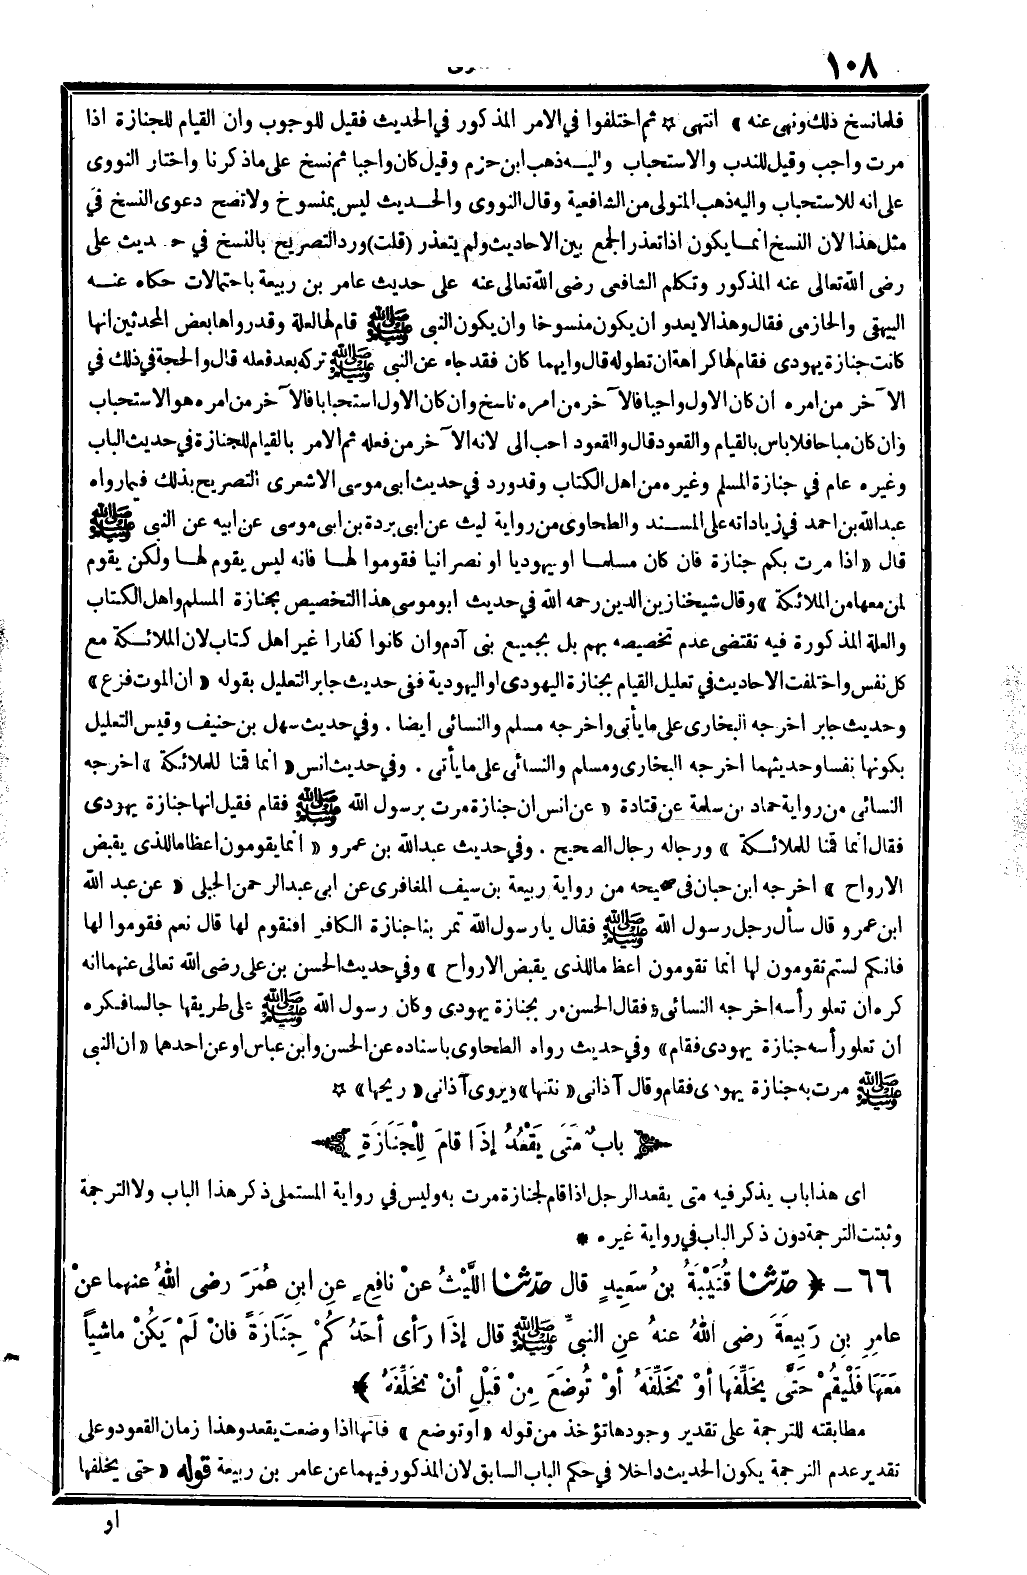 ١٠٨
فلما نسخ ذلك ونهى عنه » انتهى ☆ ثم اختلفوا في الامر المذكور في الحديث فقيل للوجوب وان القيام للجنازة اذا
مرت واجب وقيل للندب والاستحباب واليه ذهب ابن حزم وقيل كان واجبا ثم نسخ على ماذكرنا واختار النووى
على انه للاستحباب واليه ذهب المتولى من الشافعية وقال النووى والحديث ليس بمنسوخ ولا تصح دعوى النسخ في
مثل هذا لان النسخ انما يكون اذا تعذر الجمع بين الاحاديث ولم يتعذر (قلت) ورد التصريح بالنسخ في حديث على
رضى الله تعالى عنه المذكور وتكلم الشافعى رضى الله تعالى عنه على حديث عامر بن ربيعة باحتمالات حكاه عنه
البيهقى والحازمى فقال وهذا لا يعدو ان يكون منسوخا وان يكون النبى ﷺ قام لها لعلة وقد رواها بعض المحدثين انها
كانت جنازة يهودى فقام لها كراهة ان تطوله قال وايهما كان فقد جاء عن النبى ﷺ تركه بعد فعله قال والحجة في ذلك في
الآخر من امره ان كان الاول واجبا فالآخر من امره ناسخ وان كان الاول استحبابا فالآخر من امره هو الاستحباب
وان كان مباحا فلا باس بالقيام والقعود قال والقعود احب الى لانه الآخر من فعله ثم الامر بالقيام للجنازة في حديث الباب
وغيره عام في جنازة المسلم وغيره من اهل الكتاب وقد ورد في حديث ابى موسى الاشعرى التصريح بذلك فيما رواه
عبدالله بن احمد في زياداته على المسند والطحاوى من رواية ليث عن ابى بردة بن ابى موسى عن ابيه عن النبى ﷺ
قال « اذا مرت بكم جنازة فان كان مسلما او يهوديا او نصرانيا فقوموا لها فانه ليس يقوم لها ولكن يقوم
لمن معها من الملائكة » وقال شيخنا زين الدين رحمه الله في حديث ابو موسى هذا التخصيص بجنازة المسلم واهل الكتاب
والعلة المذكورة فيه تقتضى عدم تخصيصه بهم بل بجميع بنى آدم وان كانوا كفارا غير اهل كتاب لان الملائكة مع
كل نفس واختلفت الاحاديث في تعليل القيام بجنازة اليهودى او اليهودية ففى حديث جابر التعليل بقوله « ان الموت فزع »
وحديث جابر اخرجه البخارى على مايأتى واخرجه مسلم والنسائى ايضا . وفي حديث سهل بن حنيف وقيس التعليل
بكونها نفسا وحديثهما اخرجه البخارى ومسلم والنسائى على مايأتى . وفي حديث انس « انما قمنا للملائكة » اخرجه
النسائى من رواية حماد بن سلمة عن قتادة « عن انس ان جنازة مرت برسول الله ﷺ فقام فقيل انها جنازة يهودى
فقال انما قمنا للملائكة » ورجاله رجال الصحيح . وفي حديث عبدالله بن عمرو « انما يقومون اعظاما للذى يقبض
الارواح » اخرجه ابن حبان فى صحيحه من رواية ربيعة بن سيف المغافرى عن ابى عبدالرحمن الحبلى « عن عبد الله
ابن عمرو قال سأل رجل رسول الله ﷺ فقال يا رسول الله تمر بنا جنازة الكافر افنقوم لها قال نعم فقوموا لها
فانكم لستم تقومون لها انما تقومون اعظاما للذى يقبض الارواح » وفي حديث الحسن بن على رضى الله تعالى عنهما انه
كره ان تعلو رأسه اخرجه النسائى « فقال الحسن مر بجنازة يهودى وكان رسول الله ﷺ على طريقها جالسا فكره
ان تعلو رأسه جنازة يهودى فقام » وفي حديث رواه الطحاوى باسناده عن الحسن وابن عباس او عن احدهما « ان النبى
ﷺ مرت به جنازة يهودى فقام وقال آذانى « نتنها » ويروى آذانى « ريحها » ☆
باب مَتَى يَقْعُدُ إذَا قامَ لِلْجَنَازَةِ
اى هذا باب يذكر فيه متى يقعد الرجل اذا قام لجنازة مرت به وليس في رواية المستملى ذكر هذا الباب ولا الترجمة
وثبتت الترجمة دون ذكر الباب في رواية غيره *
٦٦ ـ ﴿ حدّثنا قُتَيْبَةُ بنُ سَعِيدٍ قال حدّثنا اللَّيْثُ عنْ نافِعٍ عنِ ابنِ عُمَرَ رضى اللهُ عنهما عنْ
عامِرِ بنِ رَبِيعَةَ رضى اللهُ عنهُ عنِ النبيِّ ﷺ قال إذَا رَأى أحَدُكُمْ جِنَازَةً فانْ لَمْ يَكُنْ ماشِياً
مَعَهَا فَلْيَقُمْ حَتَّى يخَلِّفَها أوْ تخَلِّفَهُ أوْ تُوضَعَ مِنْ قَبْلِ أنْ تخَلِّفَهُ ﴾
مطابقته للترجمة على تقدير وجودها تؤخذ من قوله « او توضع » فانها اذا وضعت يقعد وهذا زمان القعود وعلى
تقدير عدم الترجمة يكون الحديث داخلا في حكم الباب السابق لان المذكور فيهما عن عامر بن ربيعة قوله « حتى يخلفها
او